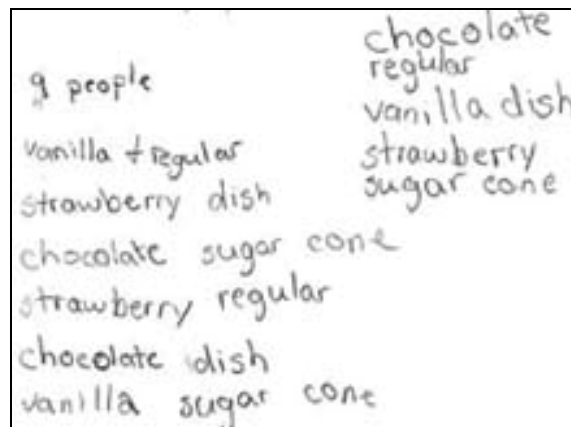 9 people
vanilla + regular
strawberry dish
chocolate sugar cone
strawberry regular
chocolate dish
vanilla sugar cone
chocolate
regular
vanilla dish
strawberry
sugar cone